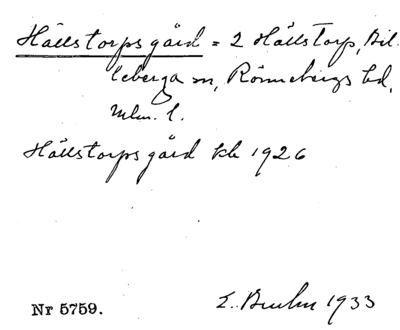 Hällstorps gård = 2 Hällstorp, Bil-
leberga sn, Rönnebergs hd,
Mlm. l.
Hällstorps gård kb 1926
Nr 5759. E. Bruhn 1933